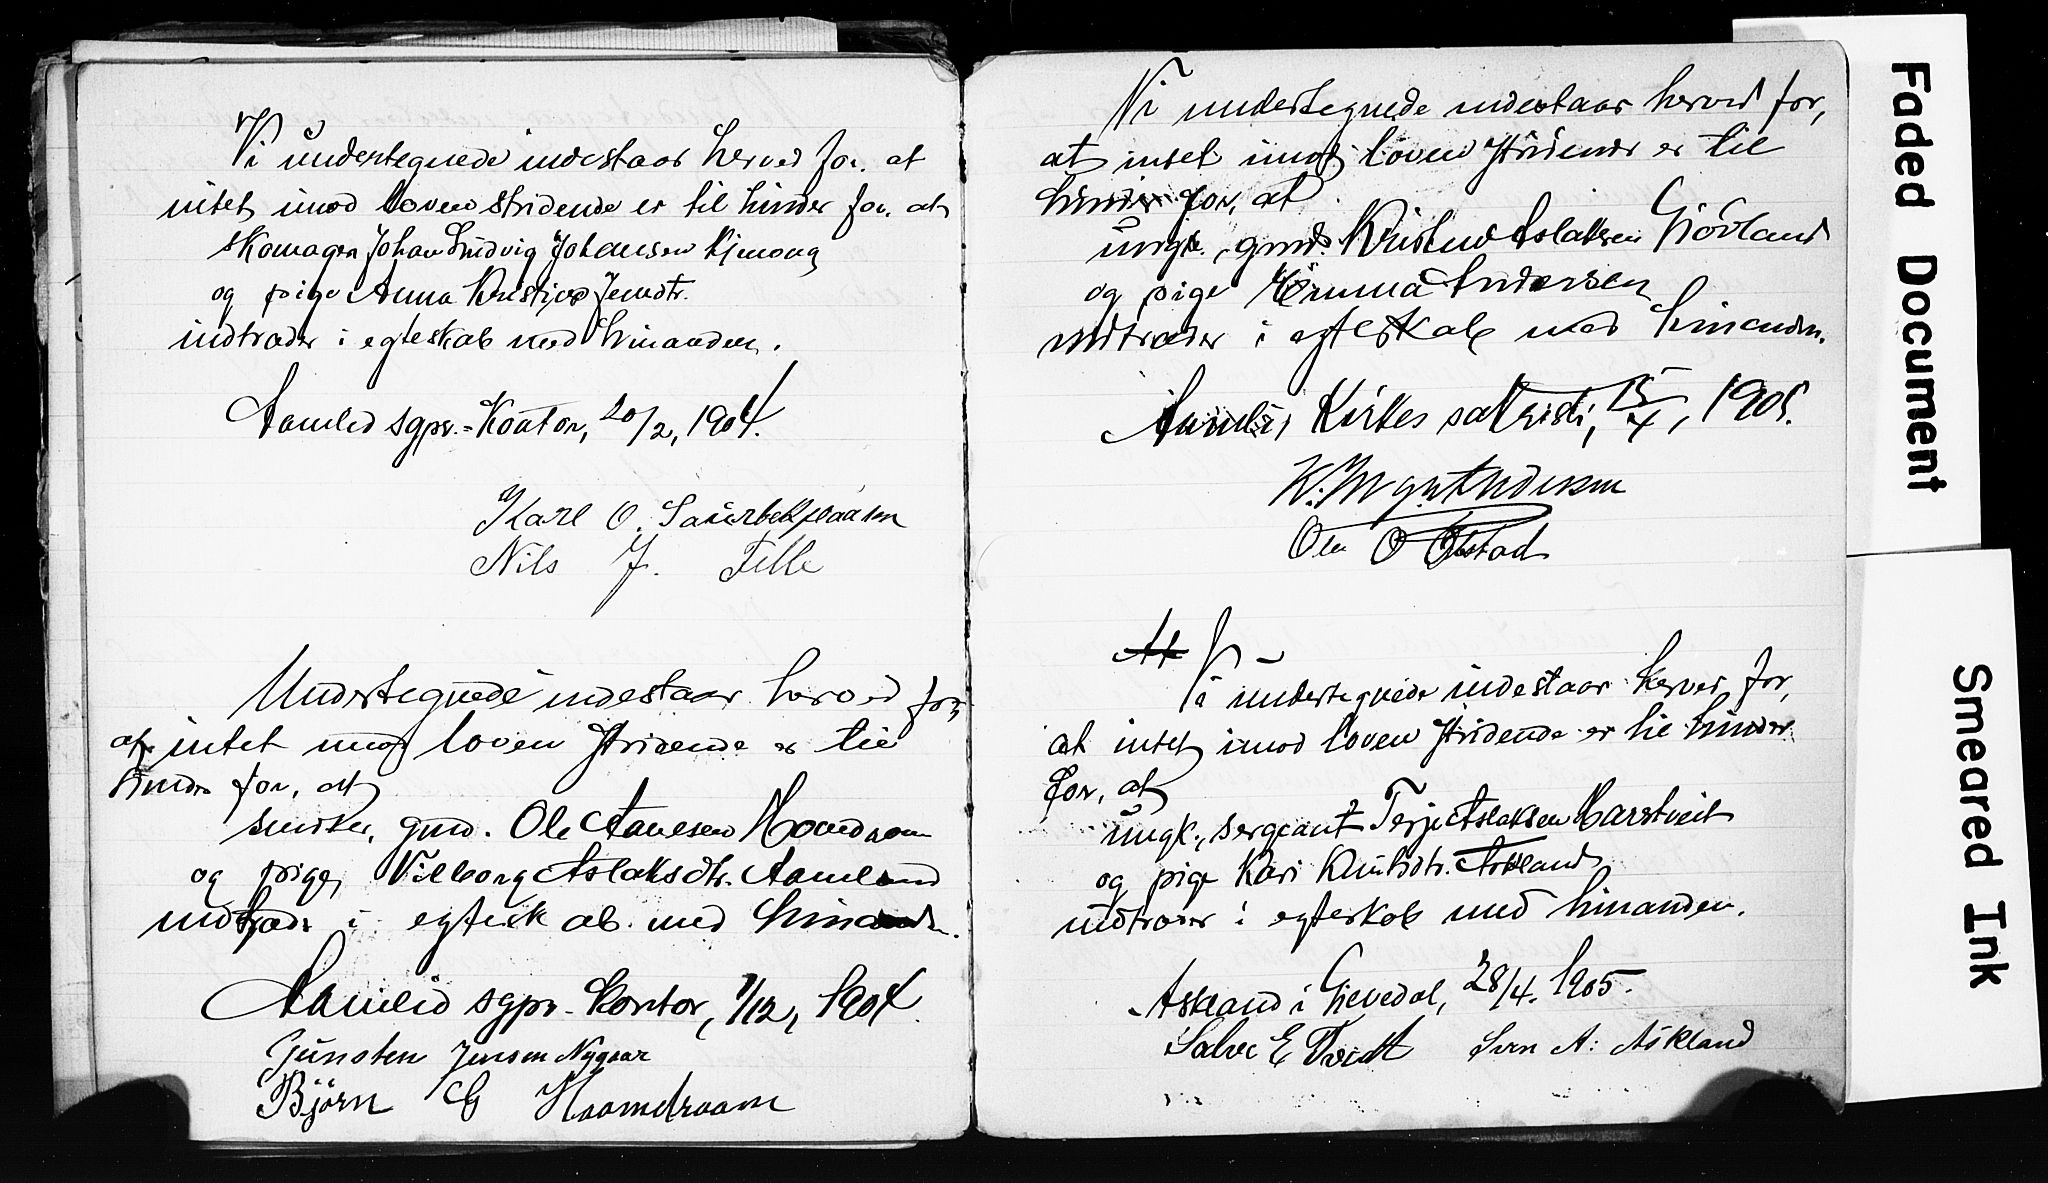 Vi undertegnede indestaar herved for, at
intet imod loven stridende er til hinder for, at
skomager Johan Ludvig Johansen
og pige Anna
indtræder i egteskab med hinanden.
Aamlid sgpr.-Kontor, 20/2, 1904.
Karl O.
Nils J. Felle
Undertegnede indestaar herved for,
at intet imod loven stridende er til
hinder for, at
enkem., gmd. Ole Aanesen
og pige Vilborg Aslaksdtr. Aamland
indtræder i egteskab med hinanden.
Aamlid sgpr.-Kontor, 1/12, 1904.
Gunsten Jensen Nygaar
Björn G Haamdraam
Vi undertegnede indestaar herved for,
at intet imod loven stridende er til
hinder for, at
ungk., gmd. Kristen Aslaksen
og pige Emma Andersen
indtræder i egteskab med hinanden.
Aamlid Kirkes sakristi, 15/4, 1905.
Ole O Ølstad
At Vi
undertegnede indestaar herved for,
at intet imod loven stridende er til hinder
for, at
ungk., sergeant Terje Aslaksen Harstveit
og pige Kari Knutsdtr. Askland
indtræder i egteskab med hinanden.
Askland i Gjevedal, 28/4. 1905.
Salve E Tveit Sven A: Askland
Faded Document
Smeared Ink